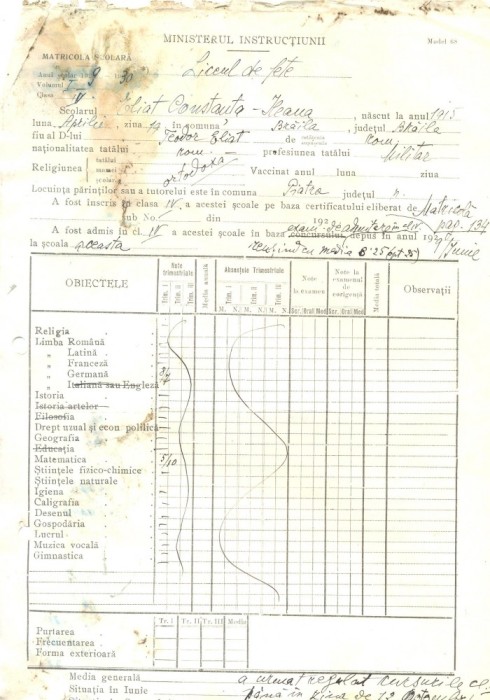 MINISTERUL INSTRUCȚIUNII
Model 68
MATRICOLA ȘCOLARĂ
Liceul de fete
Anul școlar 9 30
Volumul
Clasa IV
Școlarul Eliat Constanta - Ileana, născut la anul 1913
luna Aprilie, ziua 19 în comuna Brăila, județul Brăila
fiu al D-lui Teodor Eliat de
naționalitatea tatălui rom. — profesiunea tatălui Militar
Religiunea tatălui ortodoxa Vaccinat anul luna ziua
Locuința părinților sau a tutorelui este în comuna Piatra județul
A fost înscris în clasa IV a acestei școale pe baza certificatului eliberat de Matricolă
sub No. din 192 pag. 134
A fost admis în cl. IV a acestei școale în baza concursului depus în anul 19 Iunie
la școala aceasta
OBIECTELE
Note trimestriale
Trim. I Trim. II Trim. III
Media anuală
Absențele Trimestriale
Trim. I Trim. II Trim. III
M. N. M. N. M. N.
Note la examen
Scr. Oral Med.
Note la examenul de corigență
Scr. Oral Med.
Media totală
Observații
Religia
Limba Română
„ Latină
„ Franceză
„ Germană
„ Italiană sau Engleză
Istoria
Istoria artelor
Filosofia
Drept uzual și econ politică
Geografia
Educația
Matematica 5/10
Științele fizico-chimice
Științele naturale
Igiena
Caligrafia
Desenul
Gospodăria
Lucrul
Muzica vocală
Gimnastica
Tr. I Tr. II Tr. III Media
Purtarea
Frecuentarea
Forma exterioară
Media generală a urmat regulat cursurile cl.
Situația în Iunie până în ziua de 12